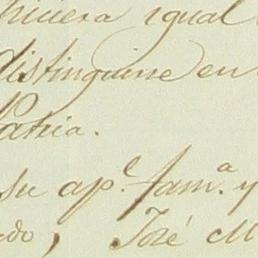 hiciera igual
distinguirse en
Patria.
su ap.e fam.a y
do, José M